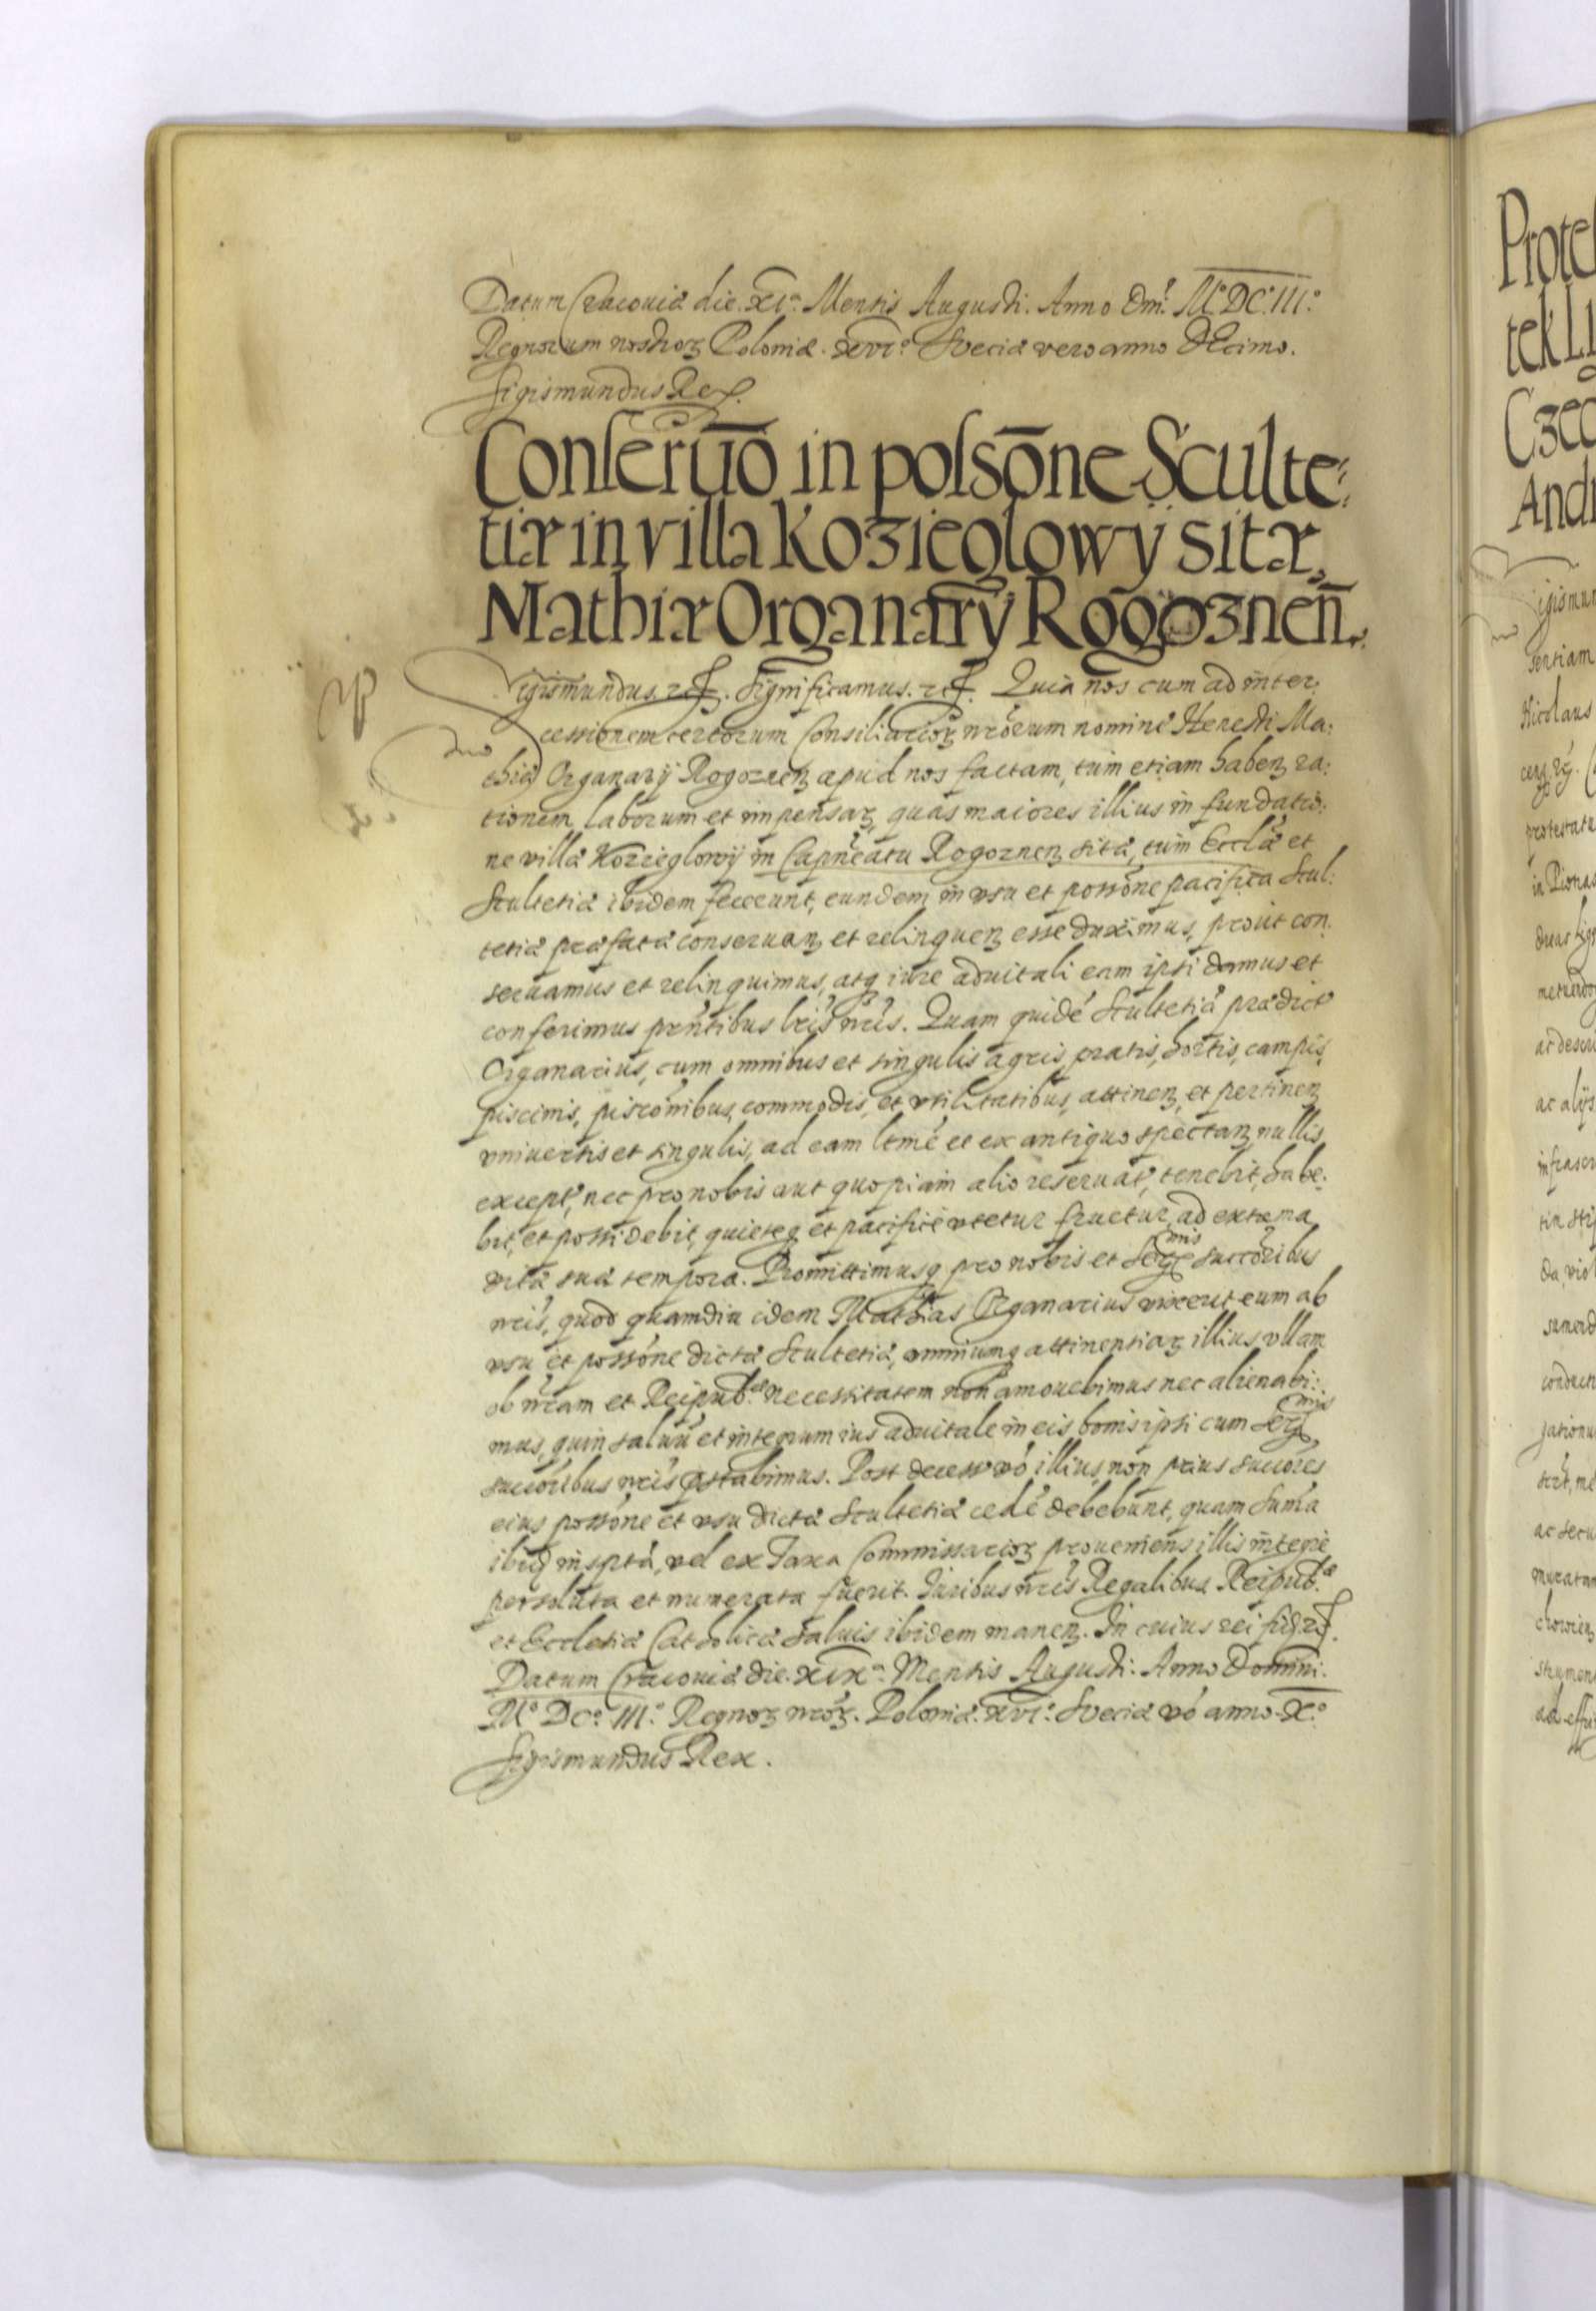 Datum Cracouiæ die. XIa. Mensis Augusti. Anno Dnĩ M.° DC.° III.°
Regnorum nostrorꝫ Poloniæ. XVI.° Sueciæ vero anno dEcimo.
Sigismundus Rex.
Conseruõ in polsõne Sculte:
tiæ in villa Kozieglowÿ sitæ,
Mathiæ Organarÿ Rogoznen̄.
Sigismundus. etc. Significamus. etc. Quia nos cum ad inter:
cessionem certorum Consiliariorꝫ nr̃orum nomine Honesti Ma:
thiæ Organarÿ Rogoznenꝫ apud nos factam, tum etiam habenꝫ ra:
tionem laborum et impensarꝫ, quas maiores illius in fundatio:
ne villæ Kozieglowÿ in Capn̄eatu Rogoznenꝫ sitæ, tum Eccl̃æ et
Scultetiæ ibidem fecerunt, eundem in vsu et possõne pacifica Scul:
tetiæ præfatæ conseruanꝫ et relinquenꝫ esse duximus, prout con:
seruamus et relinquimus, atqꝫ iure aduitali eam ipsi damus et
conferimus prñtibus lr̃is nr̃is. Quam quidẽ Scultetiã prædict
Organarius, cum omnibus et singulis agris, pratis, hortis, campis,
piscinis, piscõnibus, commodis, et vtilitatibus, attinenꝫ, et pertinenꝫ
vniuersis et singulis, ad eam ltmẽ et ex antiquo spectanꝫ, nullis
except, nec pro nobis aut quopiam alio reseruat, tenebit, habe:
bit, et possidebit, quieteqꝫ et pacificè vtetur fruetur, ad extrema
vitæ suæ tempora. Promittimusqꝫ pro nobis et Serꝫmis succõribus
nr̃is, quod quamdiu idem Mathias Organarius vixerit eum ab
vsu et possõne dictæ Scultetiæ, omniumqꝫ attinentiarꝫ illius vllam
ob nr̃am et Reipub.cæ necessitatem non amouebimus nec alienabi:
mus, quin saluũ et integrum ius aduitale in eis bonis ipsi cum Serꝫmis
succõribus nr̃is p̃stabimus. Post decess vo illius, non prius succõres
eius possõne et vsu dictæ Scultetiæ cedẽ debebunt, quam suma
ibid inscpta, vel ex Taxa Commissariorꝫ proueniens illis integrè
persoluta et numerata fuerit. Iuribus nr̃is Regalibus Reipub.cæ
et Ecclesiæ Catholicæ saluis ibidem manenꝫ. In cuius rei fid etc.
Datum Cracouiæ die. XIXa. Mensis Augusti. Anno Domini.
M.° DC.° III.° Regnorꝫ nr̃orꝫ. Poloniæ. XVI.° Sueciæ vo anno. X.°
Sigismundus Rex.